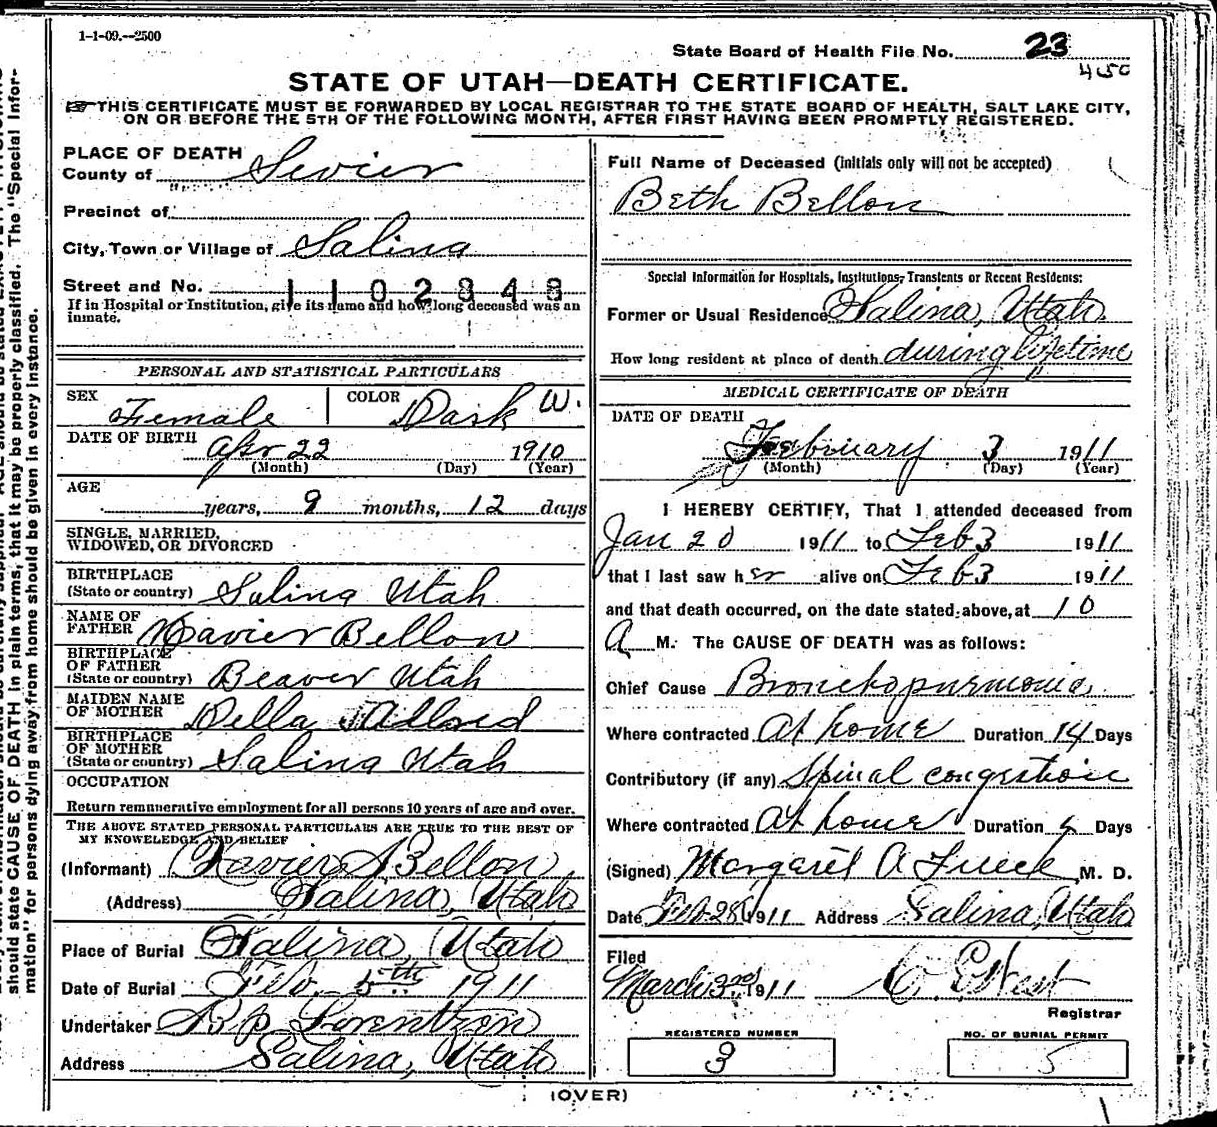 1-1-09.--2500
State Board of Health File No. 23
450
STATE OF UTAH—DEATH CERTIFICATE.
☞THIS CERTIFICATE MUST BE FORWARDED BY LOCAL REGISTRAR TO THE STATE BOARD OF HEALTH, SALT LAKE CITY,
ON OR BEFORE THE 5TH OF THE FOLLOWING MONTH, AFTER FIRST HAVING BEEN PROMPTLY REGISTERED.
PLACE OF DEATH
County of Sevier
Precinct of
City, Town or Village of Salina
Street and No. 1102848
If in Hospital or Institution, give its name and how long deceased was an
inmate.
PERSONAL AND STATISTICAL PARTICULARS
SEX Female COLOR Dark W.
DATE OF BIRTH Apr 22 1910
(Month) (Day) (Year)
AGE
years, 9 months, 12 days
SINGLE, MARRIED,
WIDOWED, OR DIVORCED
BIRTHPLACE
(State or country) Salina Utah
NAME OF
FATHER Xavier Bellon
BIRTHPLACE
OF FATHER
(State or country) Beaver Utah
MAIDEN NAME
OF MOTHER Della Allred
BIRTHPLACE
OF MOTHER
(State or country) Salina Utah
OCCUPATION
Return remunerative employment for all persons 10 years of age and over.
THE ABOVE STATED PERSONAL PARTICULARS ARE TRUE TO THE BEST OF
MY KNOWELEDGE AND BELIEF
(Informant) Xavier Bellon
(Address) Salina, Utah
Place of Burial Salina, Utah
Date of Burial Feb. 5th 1911
Undertaker Lorentzen
Address Salina, Utah
Full Name of Deceased (initials only will not be accepted)
Beth Bellon
Special Information for Hospitals, Institutions, Transients or Recent Residents:
Former or Usual Residence Salina, Utah
How long resident at place of death. during lifetime
MEDICAL CERTIFICATE OF DEATH
DATE OF DEATH
February 3 1911
(Month) (Day) (Year)
I HEREBY CERTIFY, That I attended deceased from
Jan 20 1911 to Feb 3 1911
that I last saw her alive on Feb 3 1911
and that death occurred, on the date stated above, at 10
A M. The CAUSE OF DEATH was as follows:
Chief Cause Bronchopnumonia
Where contracted At home Duration 14 Days
Contributory (if any) Spinal congestion
Where contracted At home Duration Days
(Signed) Margaret A Freece M. D.
Date Feb 28 1911 Address Salina, Utah
Filed
March 3rd 1911 C. E. West
Registrar
REGISTERED NUMBER
3
NO. OF BURIAL PERMIT
5
(OVER)
should state CAUSE OF DEATH in plain terms, that it may be properly classified. The "Special Infor-
mation" for persons dying away from home should be given in every instance.